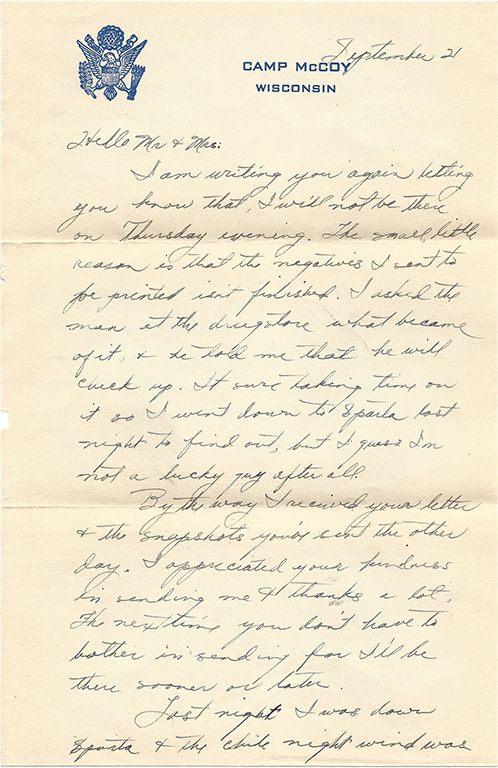 September 21
CAMP McCOY
WISCONSIN
Hello Mr & Mrs:
I am writing you again letting
you know that, I will not be there
on Thursday evening. The small little
reason is that the negatives I sent to
be printed isn't finished. I asked the
man at the drugstore what became
of it, & he told me that he will
check up. It sure taking time on
it so I went down to Sparta last
night to find out, but I guess I'm
not a lucky guy after all.
By the way I received your letter
& the snapshots you sent the other
day. I appreciated your kindness
in sending me & thanks a lot.
The next time you don't have to
bother in sending for I'll be
there sooner or later.
Last night I was down
Sparta & the chile night wind was